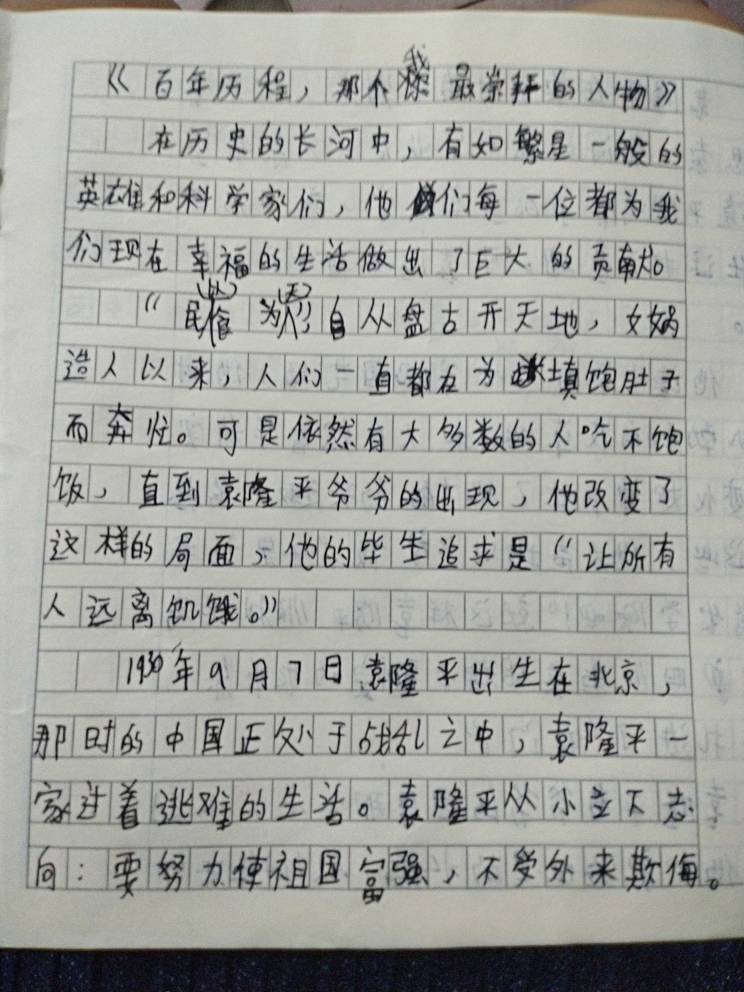 《百年历程，那个我最崇拜的人物》
在历史的长河中，有如繁星一般的
英雄和科学家们，他们每一位都为我
们现在幸福的生活做出了巨大的贡献。
“民以食为天”自从盘古开天地，女娲
造人以来，人们一直都在为填饱肚子
而奔忙。可是依然有大多数的人吃不饱
饭，直到袁隆平爷爷的出现，他改变了
这样的局面，他的毕生追求是“让所有
人远离饥饿。”
1930年9月7日袁隆平出生在北京，
那时的中国正处于战乱之中，袁隆平一
家过着逃难的生活。袁隆平从小立下志
向：要努力使祖国富强，不受外来欺侮。